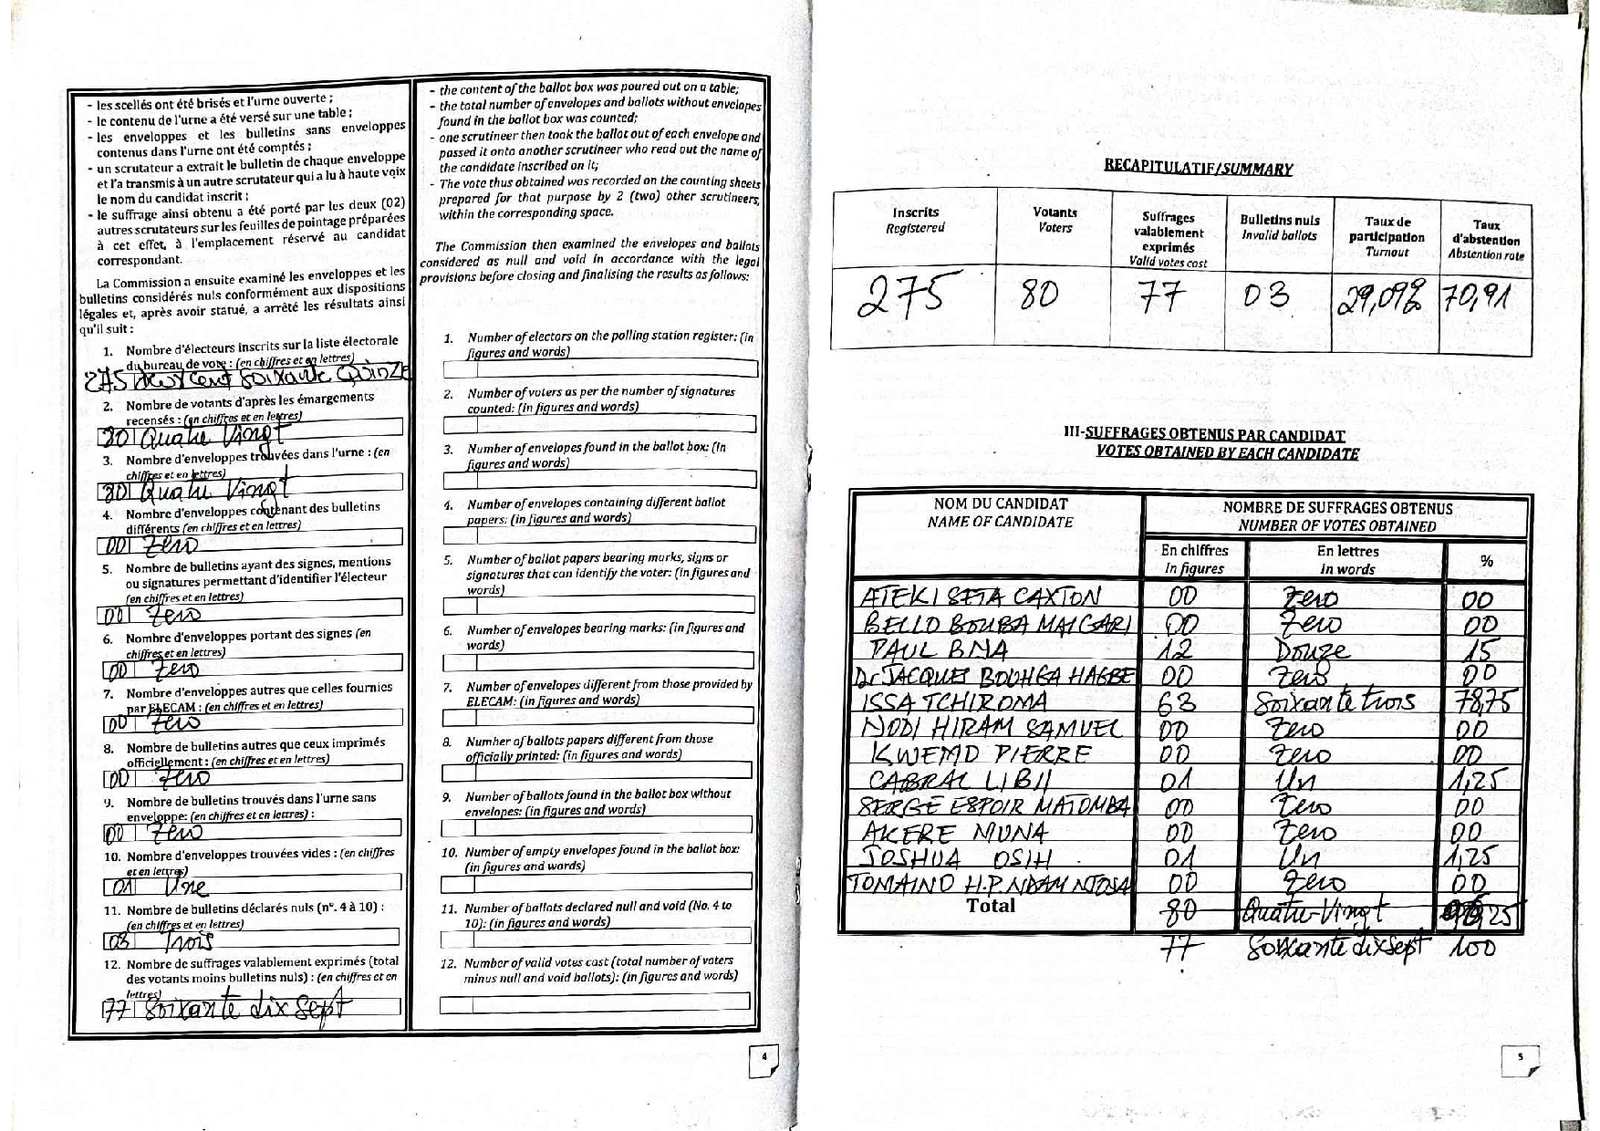 - les scellés ont été brisés et l'urne ouverte ;
- le contenu de l'urne a été versé sur une table ;
- les enveloppes et les bulletins sans enveloppes
contenus dans l'urne ont été comptés ;
- un scrutateur a extrait le bulletin de chaque enveloppe
et l'a transmis à un autre scrutateur qui a lu à haute voix
le nom du candidat inscrit ;
- le suffrage ainsi obtenu a été porté par les deux (02)
autres scrutateurs sur les feuilles de pointage préparées
à cet effet, à l'emplacement réservé au candidat
correspondant.
La Commission a ensuite examiné les enveloppes et les
bulletins considérés nuls conformément aux dispositions
légales et, après avoir statué, a arrêté les résultats ainsi
qu'il suit :
1. Nombre d'électeurs inscrits sur la liste électorale
du bureau de vote : (en chiffres et en lettres)
275 Deux cent Soixante QUINZE
2. Nombre de votants d'après les émargements
recensés : (en chiffres et en lettres)
80 Quatre Vingt
3. Nombre d'enveloppes trouvées dans l'urne : (en
chiffres et en lettres)
80 Quatre Vingt
4. Nombre d'enveloppes contenant des bulletins
différents (en chiffres et en lettres)
00 Zero
5. Nombre de bulletins ayant des signes, mentions
ou signatures permettant d'identifier l'électeur
(en chiffres et en lettres)
00 Zero
6. Nombre d'enveloppes portant des signes (en
chiffres et en lettres)
00 Zero
7. Nombre d'enveloppes autres que celles fournies
par ELECAM : (en chiffres et en lettres)
00 Zero
8. Nombre de bulletins autres que ceux imprimés
officiellement : (en chiffres et en lettres)
00 Zero
9. Nombre de bulletins trouvés dans l'urne sans
enveloppe: (en chiffres et en lettres) :
00 Zero
10. Nombre d'enveloppes trouvées vides : (en chiffres
et en lettres)
01 Une
11. Nombre de bulletins déclarés nuls (n°. 4 à 10) :
(en chiffres et en lettres)
03 Trois
12. Nombre de suffrages valablement exprimés (total
des votants moins bulletins nuls) : (en chiffres et en
lettres)
77 Soixante dix Sept
- the content of the ballot box was poured out on a table;
- the total number of envelopes and ballots without envelopes
found in the ballot box was counted;
- one scrutineer then took the ballot out of each envelope and
passed it onto another scrutineer who read out the name of
the candidate inscribed on it;
- The vote thus obtained was recorded on the counting sheets
prepared for that purpose by 2 (two) other scrutineers,
within the corresponding space.
The Commission then examined the envelopes and ballots
considered as null and void in accordance with the legal
provisions before closing and finalising the results as follows:
1. Number of electors on the polling station register: (in
figures and words)
2. Number of voters as per the number of signatures
counted: (in figures and words)
3. Number of envelopes found in the ballot box: (in
figures and words)
4. Number of envelopes containing different ballot
papers: (in figures and words)
5. Number of ballot papers bearing marks, signs or
signatures that can identify the voter: (in figures and
words)
6. Number of envelopes bearing marks: (in figures and
words)
7. Number of envelopes different from those provided by
ELECAM: (in figures and words)
8. Number of ballots papers different from those
officially printed: (in figures and words)
9. Number of ballots found in the ballot box without
envelopes: (in figures and words)
10. Number of empty envelopes found in the ballot box:
(in figures and words)
11. Number of ballots declared null and void (No. 4 to
10): (in figures and words)
12. Number of valid votes cast (total number of voters
minus null and void ballots): (in figures and words)
4
RECAPITULATIF/SUMMARY
Inscrits Registered | Votants Voters | Suffrages valablement exprimés Valid votes cast | Bulletins nuls Invalid ballots | Taux de participation Turnout | Taux d'abstention Abstention rate
275 80 77 03 29,09% 70,91
III-SUFFRAGES OBTENUS PAR CANDIDAT
VOTES OBTAINED BY EACH CANDIDATE
NOM DU CANDIDAT NOMBRE DE SUFFRAGES OBTENUS
NAME OF CANDIDATE NUMBER OF VOTES OBTAINED
En chiffres En lettres %
In figures In words
ATEKI SETA CAXTON 00 Zero 00
BELLO BOUBA MAIGARI 00 Zero 00
PAUL BIYA 12 Douze 15
Dr JACQUES BOUHGA HAGBE 00 Zero 00
ISSA TCHIROMA 63 Soixante trois 78,75
NODI HIRAM SAMUEL 00 Zero 00
KWEMO PIERRE 00 Zero 00
CABRAL LIBII 01 Un 1,25
SERGE ESPOIR MATOMBA 00 Zero 00
AKERE MUNA 00 Zero 00
JOSHUA OSIH 01 Un 1,25
TOMAINO H.P. NDAM NJOYA 00 Zero 00
Total 80 Quatre-Vingt
77 Soixante dix sept 100
5